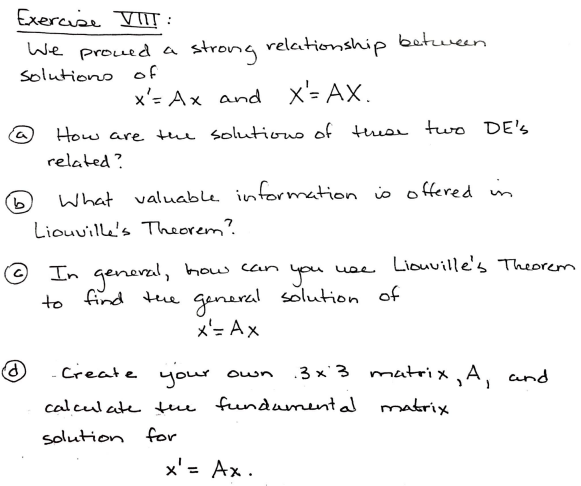 Exercise VIII:
We proved a strong relationship between
solutions of
x'= Ax and X'= AX.
(a) How are the solutions of these two DE's
related?
(b) What valuable information is offered in
Liouville's Theorem?
(c) In general, how can you use Liouville's Theorem
to find the general solution of
x'= Ax
(d) - Create your own 3x3 matrix, A, and
calculate the fundamental matrix
solution for
x' = Ax.